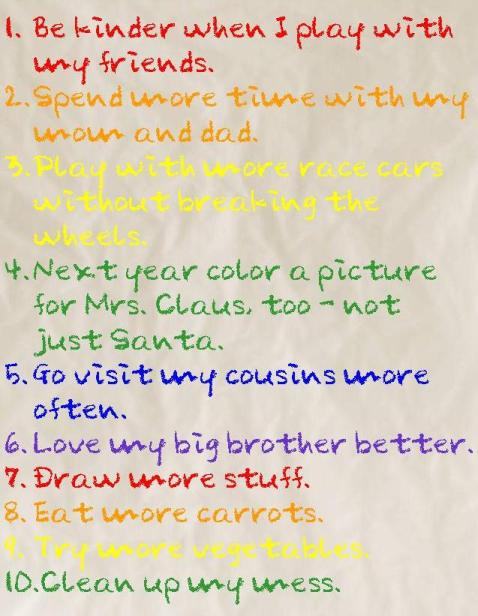 1. Be kinder when I play with
my friends.
2. Spend more time with my
mom and dad.
3. Play with more race cars
without breaking the
wheels.
4. Next year color a picture
for Mrs. Claus, too - not
just Santa.
5. Go visit my cousins more
often.
6. Love my big brother better.
7. Draw more stuff.
8. Eat more carrots.
9. Try more vegetables.
10. Clean up my mess.